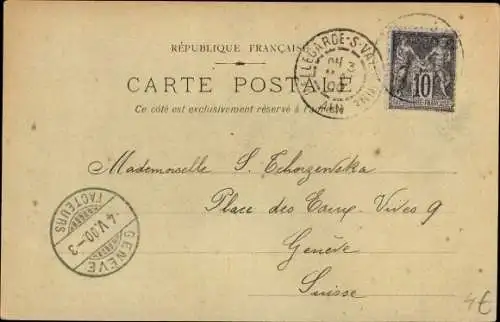 RÉPUBLIQUE FRANÇAISE
CARTE POSTALE
Ce côté est exclusivement réservé à l'adresse
BELLEGARDE-S-VAL
AIN
10
Mademoiselle S. Tchorzewska
Place des Eaux-Vives 9
Genève
Suisse
GENÈVE
4.V.00-3
FACTEURS
4€